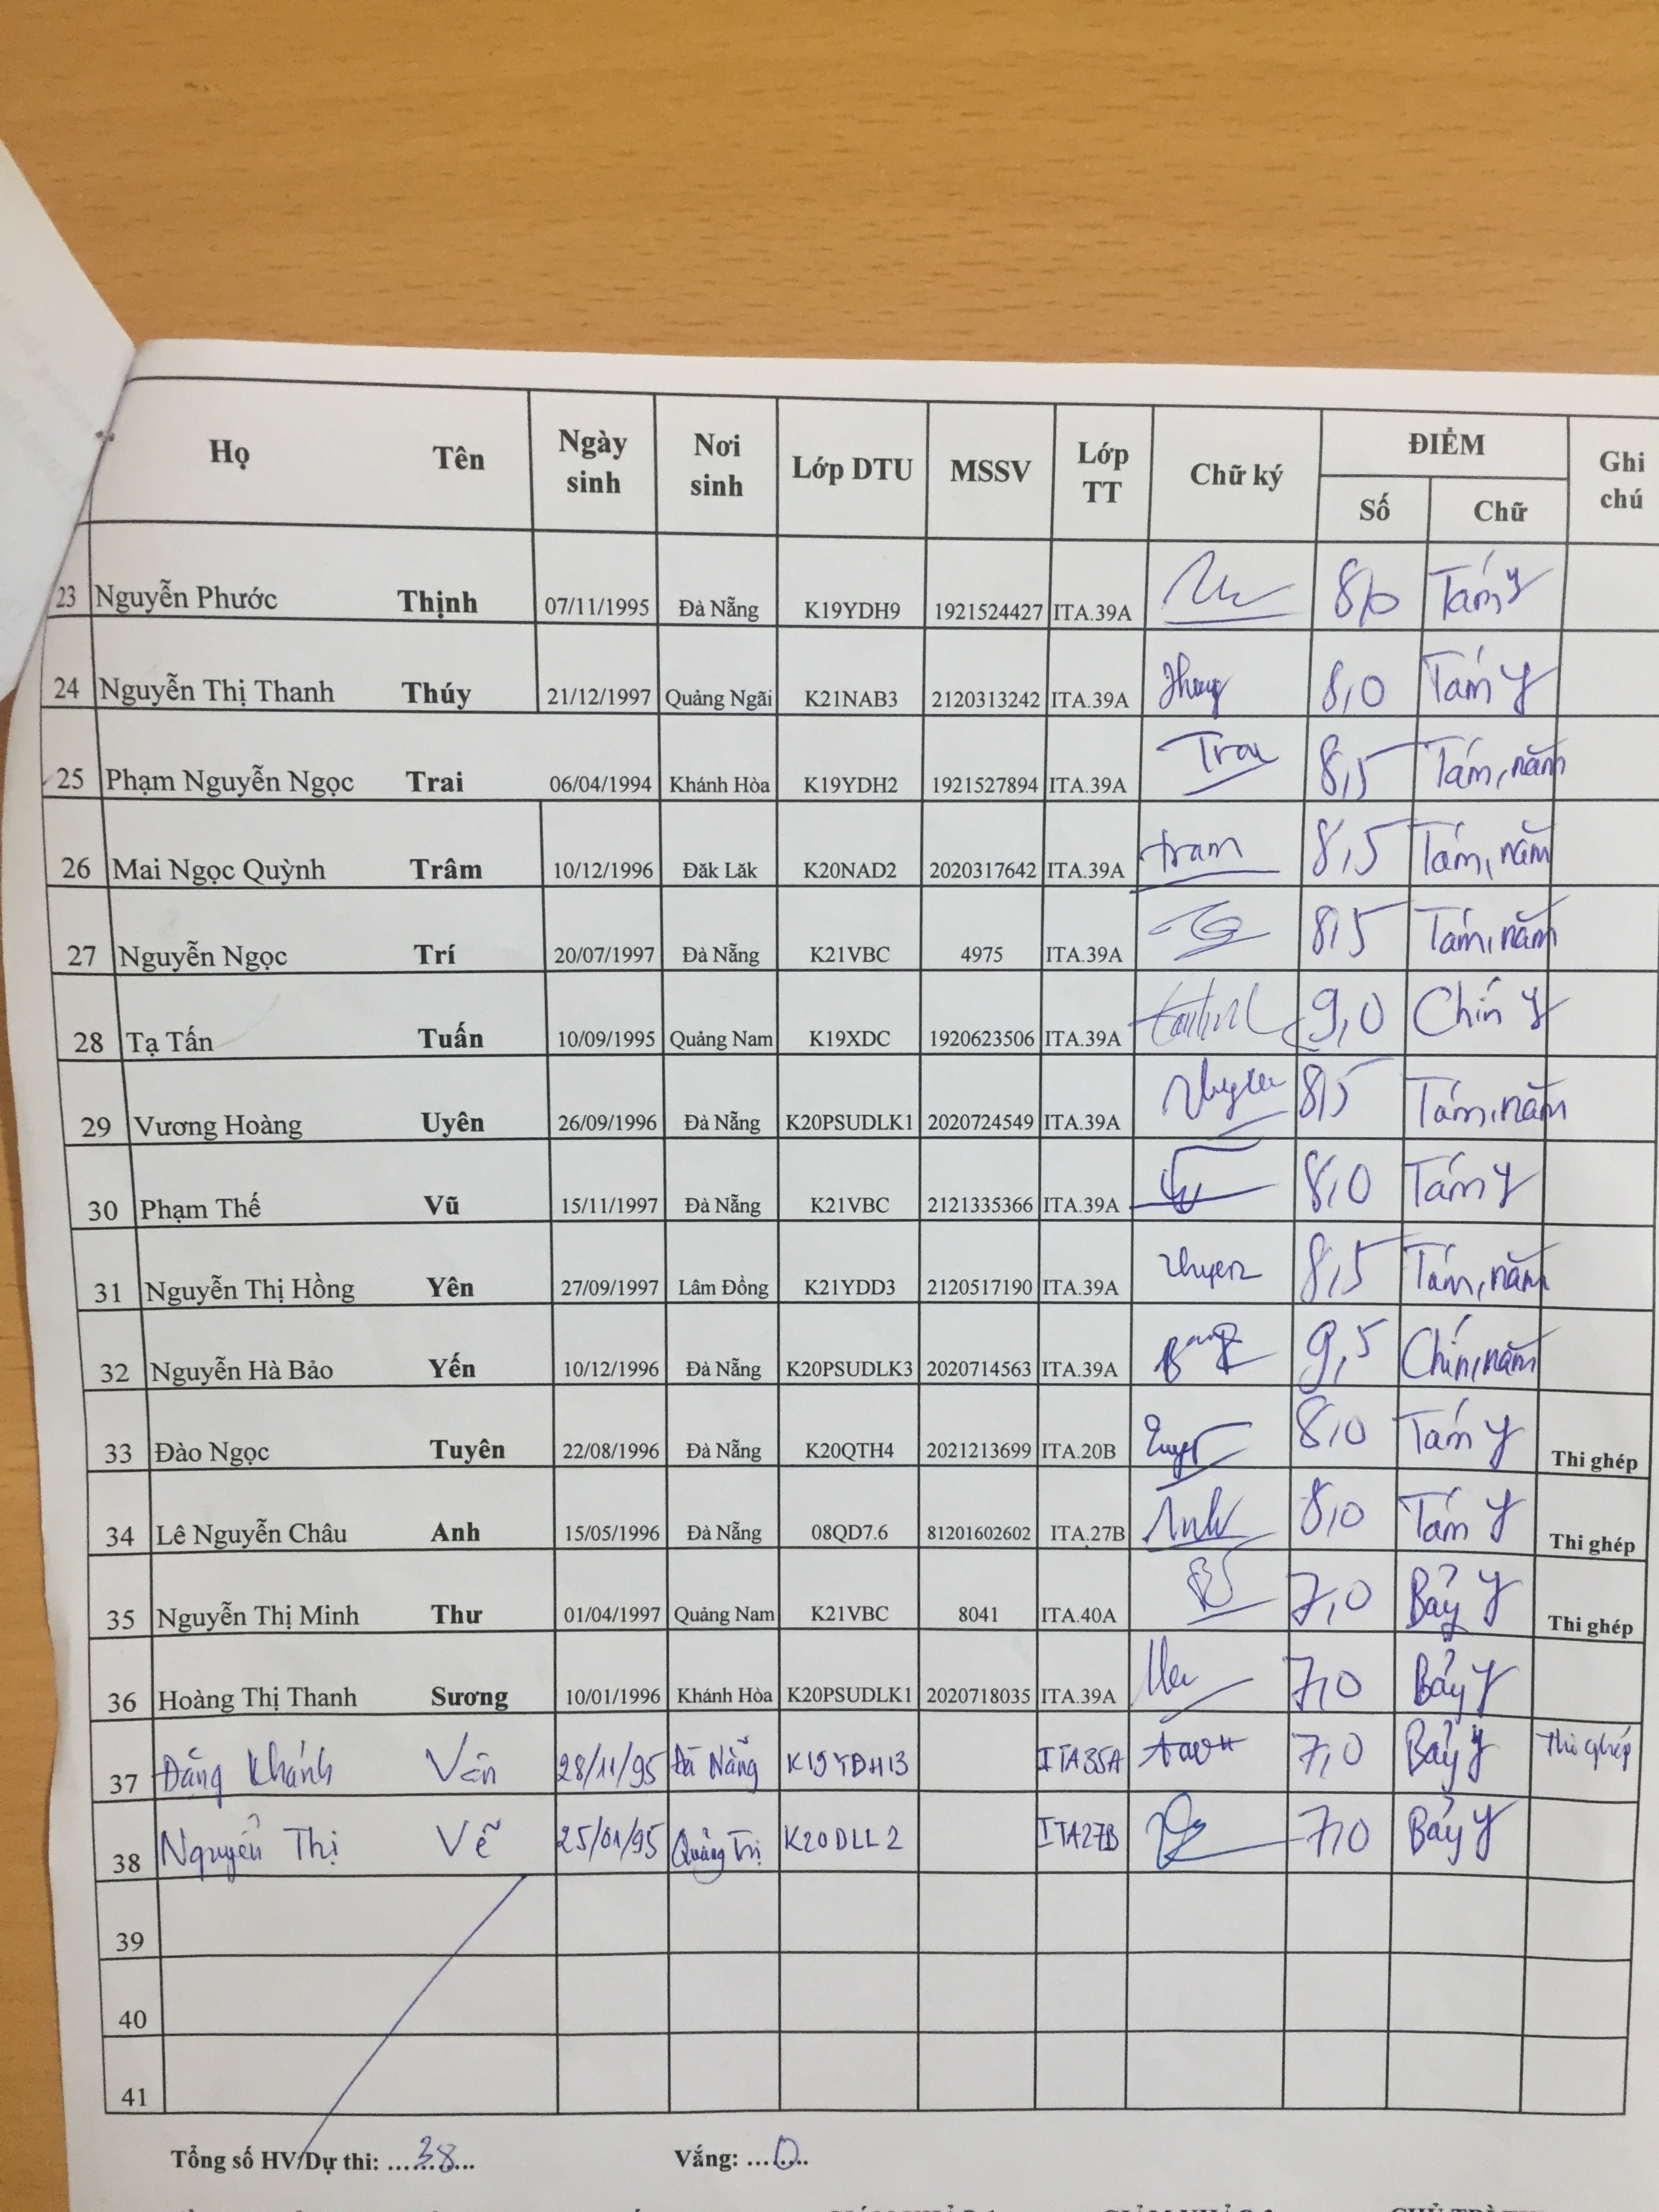 Họ Tên Ngày sinh Nơi sinh Lớp DTU MSSV Lớp TT Chữ ký ĐIỂM Ghi chú
Số Chữ
23 Nguyễn Phước Thịnh 07/11/1995 Đà Nẵng K19YDH9 1921524427 ITA.39A 8,0 Tám y
24 Nguyễn Thị Thanh Thúy 21/12/1997 Quảng Ngãi K21NAB3 2120313242 ITA.39A Thuy 8,0 Tám y
25 Phạm Nguyễn Ngọc Trai 06/04/1994 Khánh Hòa K19YDH2 1921527894 ITA.39A Trai 8,5 Tám, năm
26 Mai Ngọc Quỳnh Trâm 10/12/1996 Đăk Lăk K20NAD2 2020317642 ITA.39A tram 8,5 Tám, năm
27 Nguyễn Ngọc Trí 20/07/1997 Đà Nẵng K21VBC 4975 ITA.39A 8,5 Tám, năm
28 Tạ Tấn Tuấn 10/09/1995 Quảng Nam K19XDC 1920623506 ITA.39A 9,0 Chín y
29 Vương Hoàng Uyên 26/09/1996 Đà Nẵng K20PSUDLK1 2020724549 ITA.39A 8,5 Tám, năm
30 Phạm Thế Vũ 15/11/1997 Đà Nẵng K21VBC 2121335366 ITA.39A 8,0 Tám y
31 Nguyễn Thị Hồng Yên 27/09/1997 Lâm Đồng K21YDD3 2120517190 ITA.39A 8,5 Tám, năm
32 Nguyễn Hà Bảo Yến 10/12/1996 Đà Nẵng K20PSUDLK3 2020714563 ITA.39A 9,5 Chín, năm
33 Đào Ngọc Tuyên 22/08/1996 Đà Nẵng K20QTH4 2021213699 ITA.20B 8,0 Tám y Thi ghép
34 Lê Nguyễn Châu Anh 15/05/1996 Đà Nẵng 08QD7.6 81201602602 ITA.27B Anh 8,0 Tám y Thi ghép
35 Nguyễn Thị Minh Thư 01/04/1997 Quảng Nam K21VBC 8041 ITA.40A 7,0 Bảy y Thi ghép
36 Hoàng Thị Thanh Sương 10/01/1996 Khánh Hòa K20PSUDLK1 2020718035 ITA.39A 7,0 Bảy y
37 Đặng Khánh Vân 28/11/95 Đà Nẵng K19YDH13 ITA35A 7,0 Bảy y Thi ghép
38 Nguyễn Thị Vẽ 25/01/95 Quảng Trị K20DLL2 ITA27B 7,0 Bảy y
39
40
41
Tổng số HV/Dự thi: ...38... Vắng: ...0...